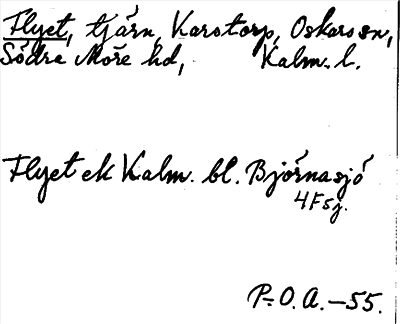 Flyet, tjärn, Karstorp, Oskars sn,
Södra Möre hd, Kalm. l.
Flyet ek Kalm. bl. Björnasjö
4Fsj.
P.O.A.-55.